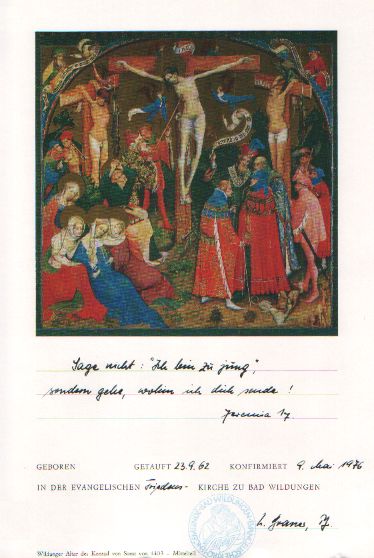 Sage nicht: "Ich bin zu jung",
sondern gehe, wohin ich dich sende!
Jeremia 1,7
GEBOREN GETAUFT 23.9.62 KONFIRMIERT 9. Mai 1976
IN DER EVANGELISCHEN Friedens- KIRCHE ZU BAD WILDUNGEN
Wildunger Altar des Konrad von Soest von 1403 – Mittelteil